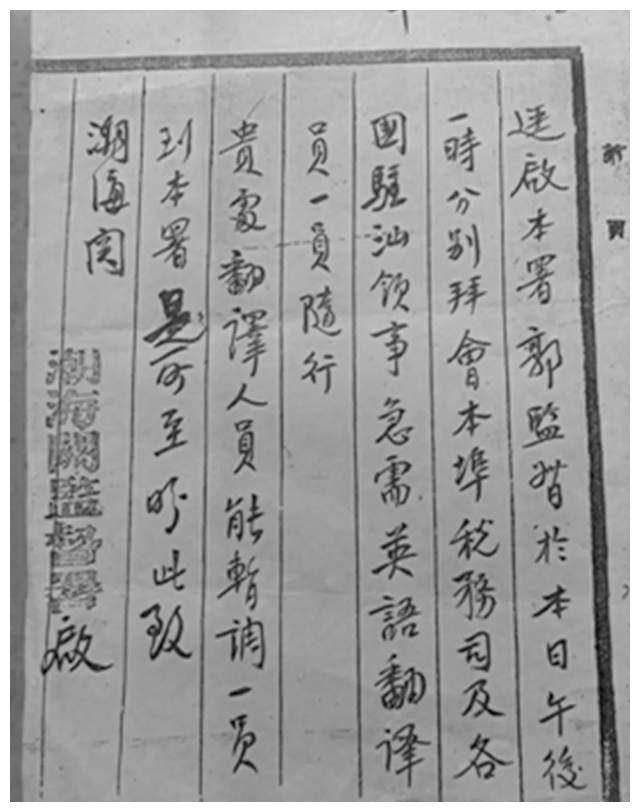 逕啟本署郭監督於本日午後
一時分別拜會本埠稅務司及各
國駐汕領事急需英語翻譯
員一員隨行
貴處翻譯人員能暫調一員
到本署是所至盼此致
潮海関
潮海關監督署啟